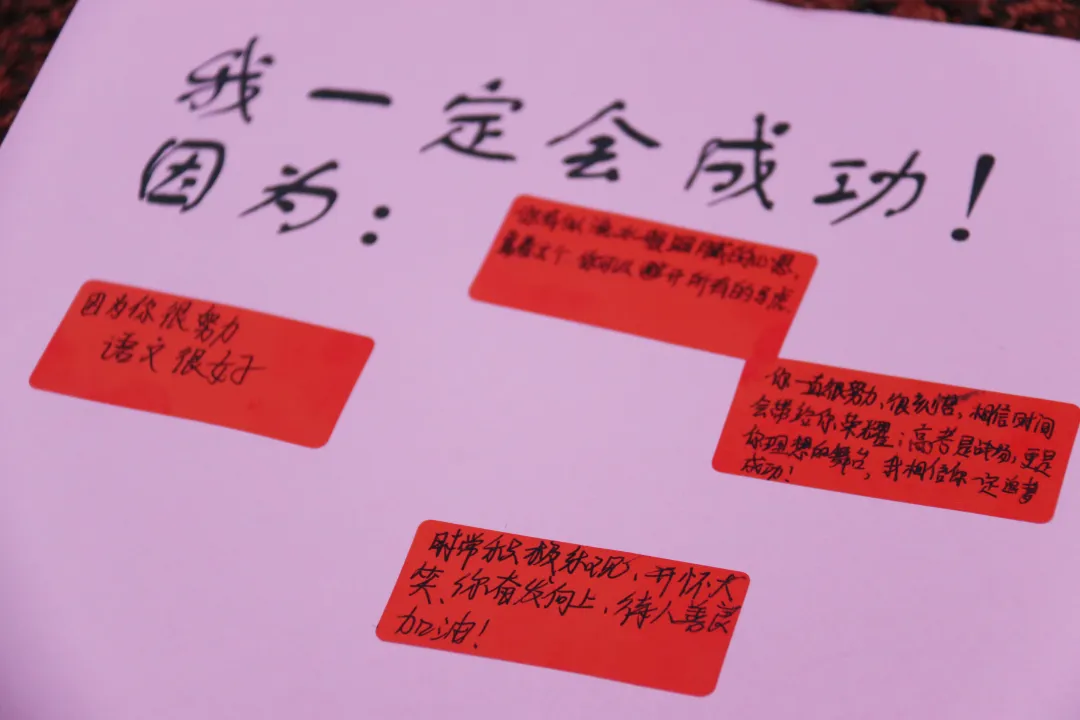 我一定会成功！
因为：
你有似流水一般细腻的心思，
你可以 开所有的
因为你很努力
语文很好
你一直很努力、很刻苦，相信时间
会带给你荣耀；高考是战场，更是
你理想的舞台，我相信你一定追梦
成功！
时常积极乐观，开怀大
笑、你奋发向上，待人善良
加油！